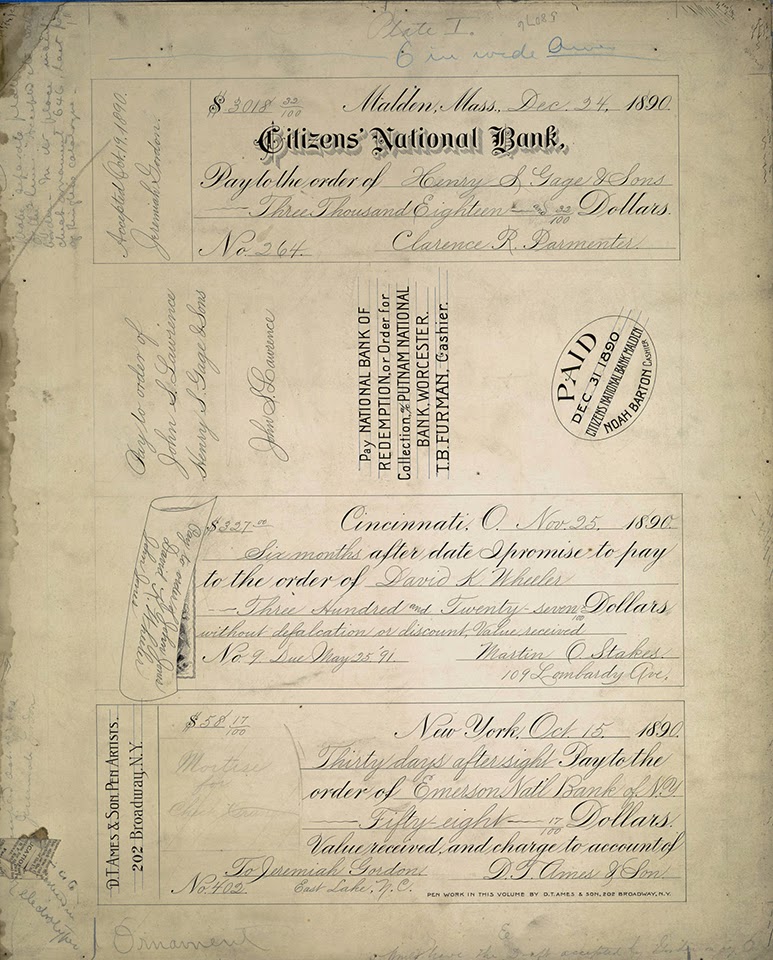 Plate I.
6 in wide Ames
$ 3018 32/100 Malden, Mass., Dec. 24, 1890.
Citizens' National Bank,
Pay to the order of Henry S. Gage & Sons
Three Thousand Eighteen & 32/100 Dollars.
No. 264. Clarence R. Parmenter.
Accepted Oct. 19, 1890.
Jeremiah Gordon.
Pay to order of
John S. Lawrence
Henry S. Gage & Sons
John S. Lawrence
Pay NATIONAL BANK OF
REDEMPTION, or Order for
Collection, % PUTNAM NATIONAL
BANK, WORCESTER.
I.B. FURMAN, Cashier.
PAID
DEC. 31 1890
CITIZENS NATIONAL BANK MALDEN
NOAH BARTON CASHIER
$327.00 Cincinnati, O. Nov. 25, 1890.
Six months after date I promise to pay
to the order of David K. Wheeler
Three Hundred and Twenty-seven /100 Dollars
without defalcation or discount, Value received
No. 9. Due May 25 '91. Martin O. Stakes
109 Lombardy Ave.
Pay to
David K. Wheeler
John Jones
D.T. AMES & SON, PEN ARTISTS.
202 Broadway, N.Y.
$58 17/100 New York, Oct 15, 1890.
Thirty days after sight Pay to the
order of Emerson Nat'l Bank of N.Y.
Fifty eight 17/100 Dollars.
Value received, and charge to account of
To Jeremiah Gordon D. T. Ames & Son.
No. 402. East Lake, N.C.
PEN WORK IN THIS VOLUME BY D.T. AMES & SON, 202 BROADWAY, N.Y.
Mortise
for
Ornament